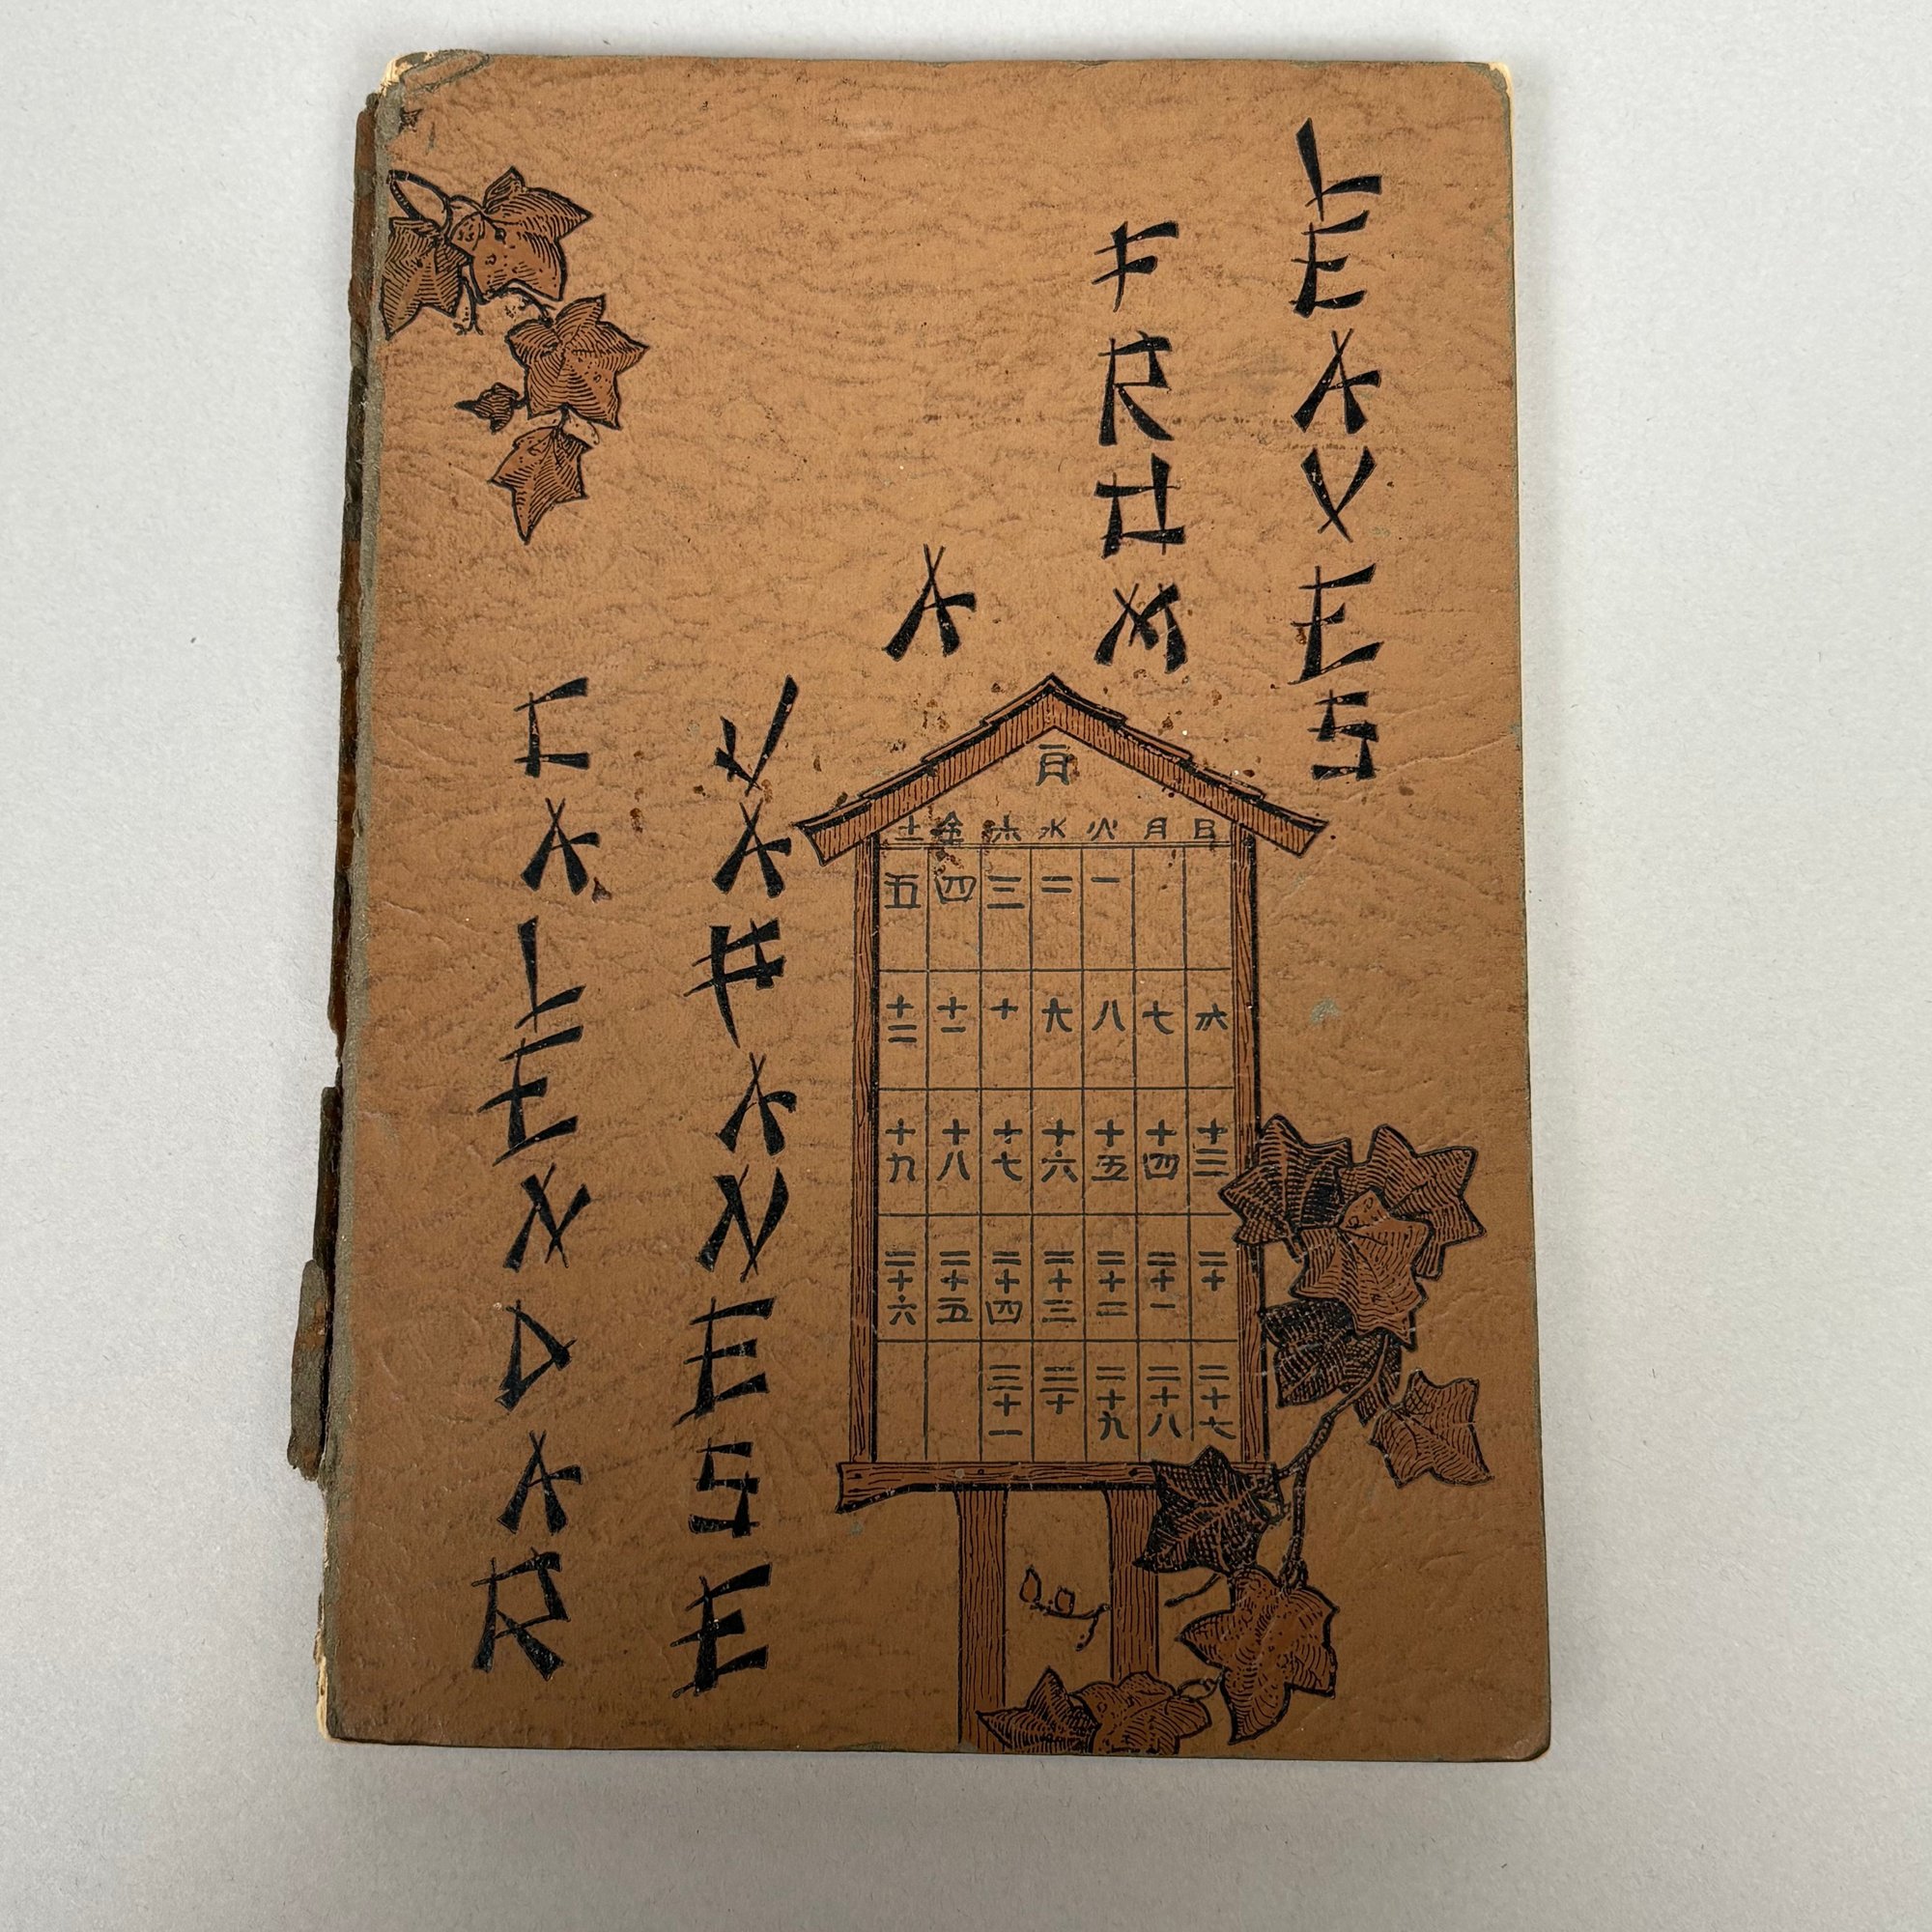 LEAVES
FROM
A
JAPANESE
CALENDAR
一月
日 月 火 水 木 金 土
一 二 三 四 五
六 七 八 九 十 十一 十二
十三 十四 十五 十六 十七 十八 十九
二十 二十一 二十二 二十三 二十四 二十五 二十六
二十七 二十八 二十九 三十 三十一